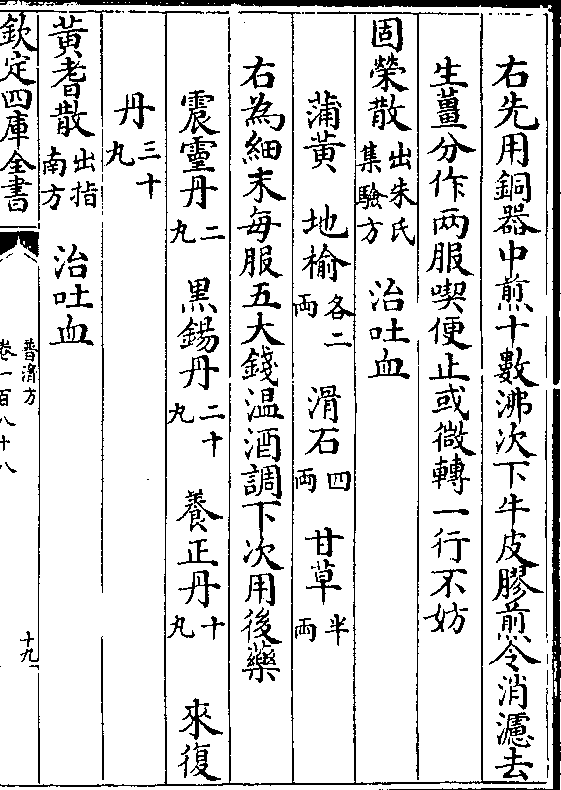 右先用銅器中煎十數沸次下牛皮膠煎令消濾去
生薑分作两服喫便止或微轉一行不妨
固榮散出朱氏集驗方 治吐血
蒲黄 地榆各二两 滑石四两 甘草半两
右為細末每服五大錢温酒調下次用後藥
震靈丹二丸 黒錫丹二十丸 養正丹十丸 來復
丹三十丸
黄耆散出指南方 治吐血
欽定四庫全書
普濟方
卷一百八十八
十九